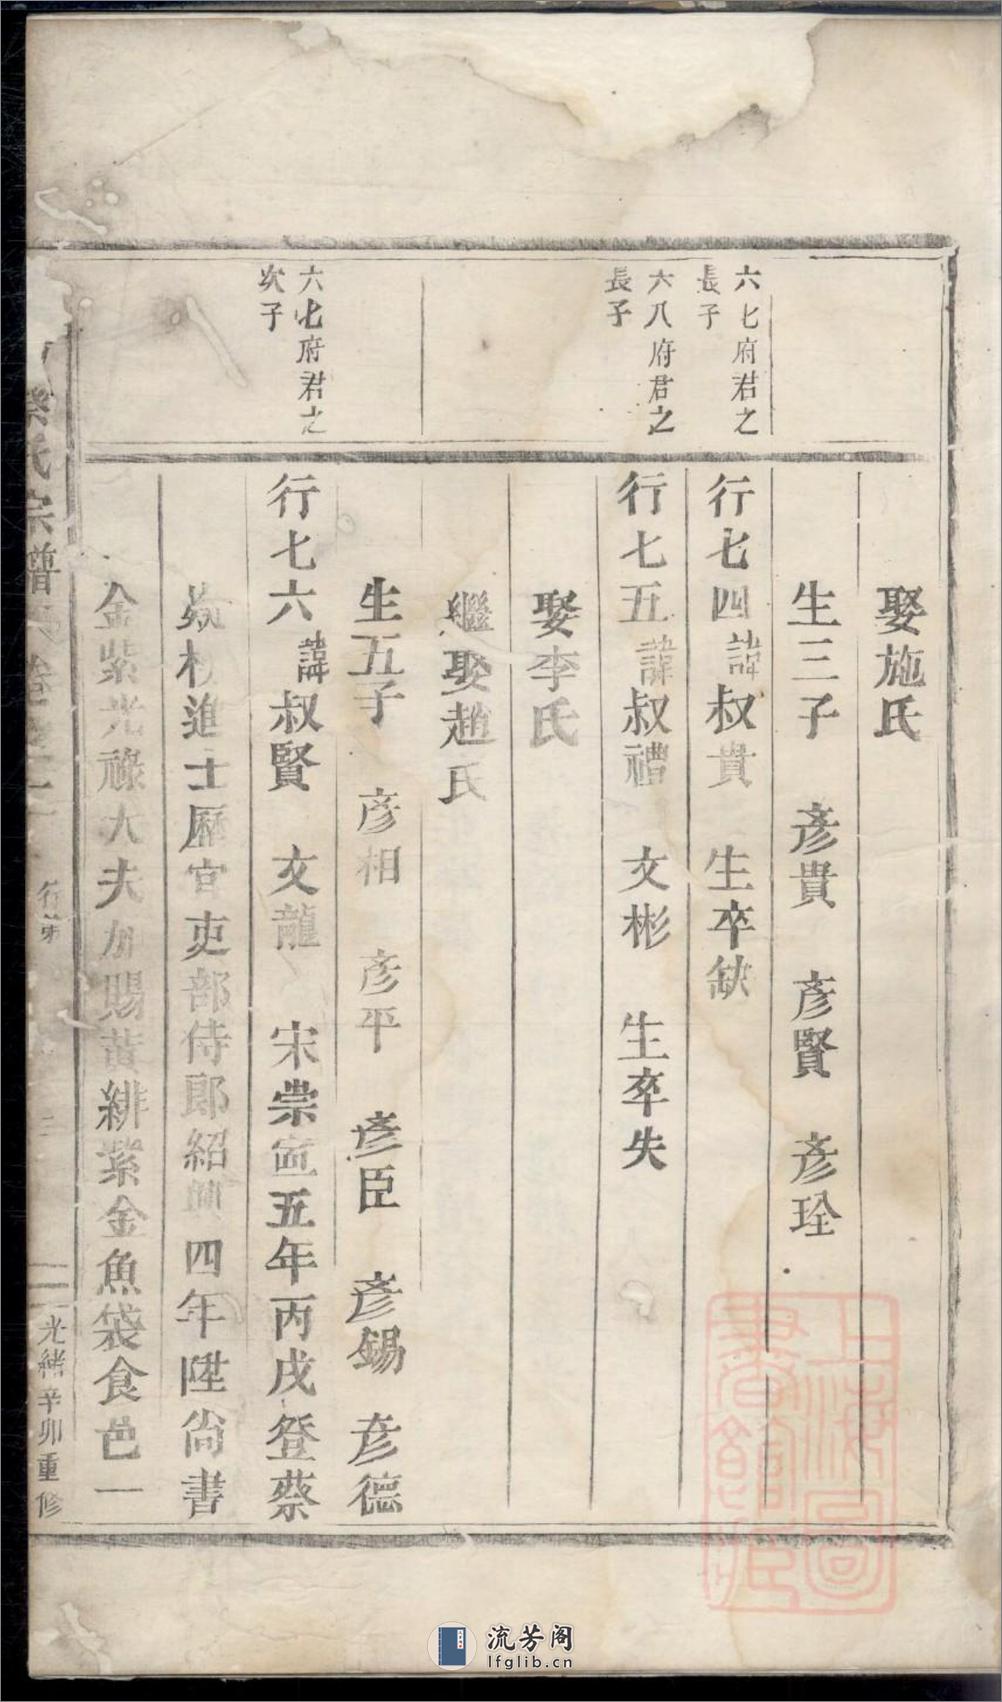 娶施氏
生三子　彥貴　彥賢　彥珍
六七府君之
長子
行七四諱叔貴　生卒缺
六八府君之
長子
行七五諱叔禮　文彬　生卒失
娶李氏
繼娶趙氏
生五子　彥相　彥平　彥臣　彥錫　彥德
六七府君之
次子
行七六諱叔賢　文龍　宋崇寍五年丙戌登蔡
榜進士歷官吏部侍郎紹興四年陞尚書
金紫光祿大夫加賜黃緋紫金魚袋食邑一
氏宗譜
行第
光緒辛卯重修
上海圖書館藏
流芳阁
lfglib.cn